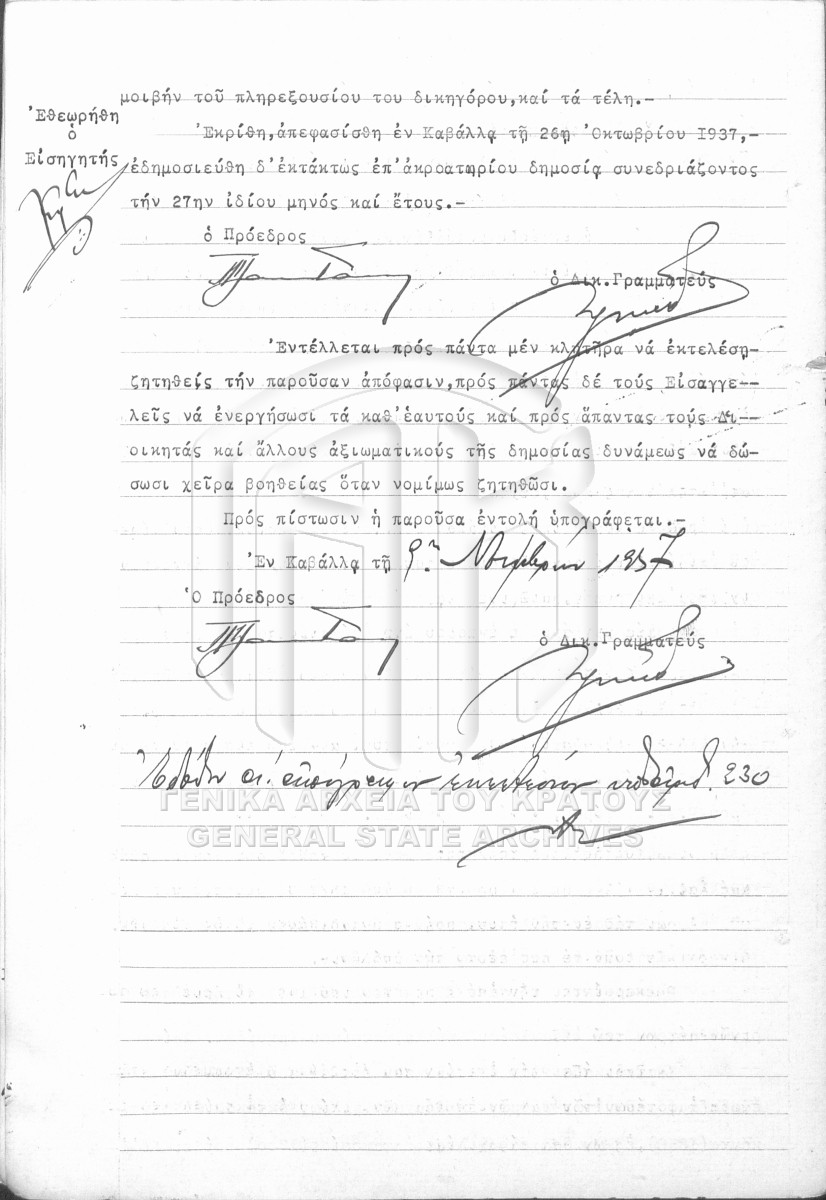 μοιβήν τοῦ πληρεξουσίου του δικηγόρου,καί τά τέλη.-
Ἐθεωρήθη
ὁ
Εἰσηγητής
Ἐκρίθη,ἀπεφασίσθη ἐν Καβάλλᾳ τῇ 26ῃ Ὀκτωβρίου 1937,-
ἐδημοσιεύθη δ'ἐκτάκτως ἐπ'ἀκροατηρίου δημοσίᾳ συνεδριάζοντος
τήν 27ην ἰδίου μηνός καί ἔτους.-
ὁ Πρόεδρος
ὁ Δικ.Γραμματεύς
Ἐντέλλεται πρός πάντα μέν κλητῆρα νά ἐκτελέσῃ-
ζητηθείς τήν παροῦσαν ἀπόφασιν,πρός πάντας δέ τούς Εἰσαγγε--
λεῖς νά ἐνεργήσωσι τά καθ'ἑαυτούς καί πρός ἅπαντας τούς Δι--
οικητάς καί ἄλλους ἀξιωματικούς τῆς δημοσίας δυνάμεως νά δώ-
σωσι χεῖρα βοηθείας ὅταν νομίμως ζητηθῶσι.
Πρός πίστωσιν ἡ παροῦσα ἐντολή ὑπογράφεται.-
Ἐν Καβάλλᾳ τῇ 9ῃ Νοεμβρίου 1937
Ὁ Πρόεδρος
ὁ Δικ.Γραμματεύς
230
ΓΕΝΙΚΑ ΑΡΧΕΙΑ ΤΟΥ ΚΡΑΤΟΥΣ
GENERAL STATE ARCHIVES